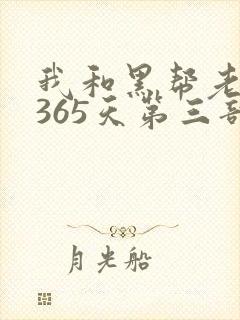 我和黑帮老
365天第三部
月光船